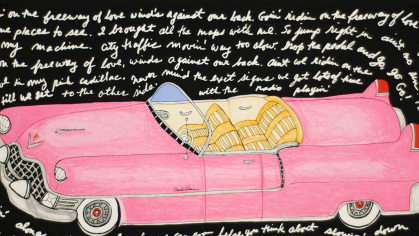 on the freeway of love wind's against our back. Goin' ridin on the freeway of love
places to see. I brought all the maps with me. So jump right in ain't
my machine. City traffic movin' way too slow. Drop the pedal and go go go
on the freeway of love, winds against our back. Ain't we ridin on the
in my pink cadillac. Never mind the exit signs we got lots of time
till we get to the other side. with the radio playin'
Cadillac
along think about slowin' down